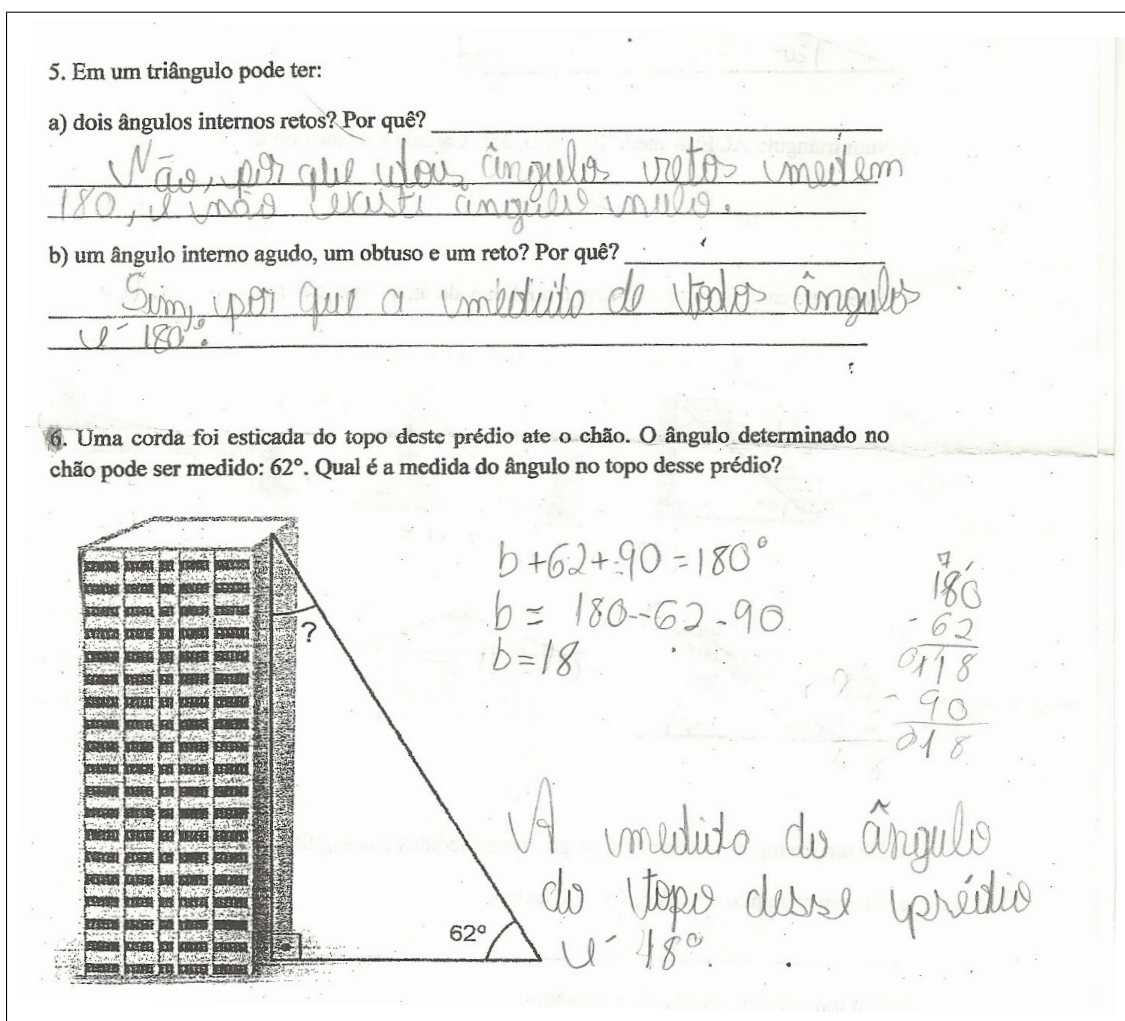 5. Em um triângulo pode ter:
a) dois ângulos internos retos? Por quê?
Não, por que dois ângulos retos medem
180, e não existi ângulo nulo.
b) um ângulo interno agudo, um obtuso e um reto? Por quê?
Sim, por que a medida de todos ângulos
é 180°.
6. Uma corda foi esticada do topo deste prédio ate o chão. O ângulo determinado no
chão pode ser medido: 62°. Qual é a medida do ângulo no topo desse prédio?
b+62+90=180°
b= 180-62-90
b=18
?
62°
7
180
-62
0118
-90
018
A medida do ângulo
do topo desse prédio
é 18°.